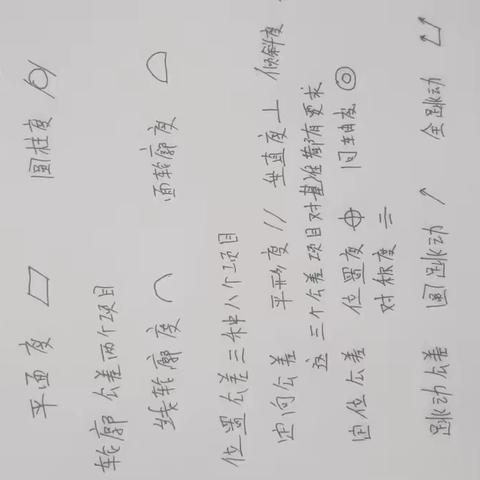 平面度 ▱ 圆柱度 ⌭
轮廓公差两个项目
线轮廓度 ⌒ 面轮廓度 ⌓
位置公差三种八个项目
定向公差 平形度 // 垂直度 ⊥ 倾斜度
这三个公差项目对基准都有要求
定位公差 位置度 ⌖ 同轴度 ◎
对称度 ⌯
跳动公差 圆跳动 ↗ 全跳动 ⌰